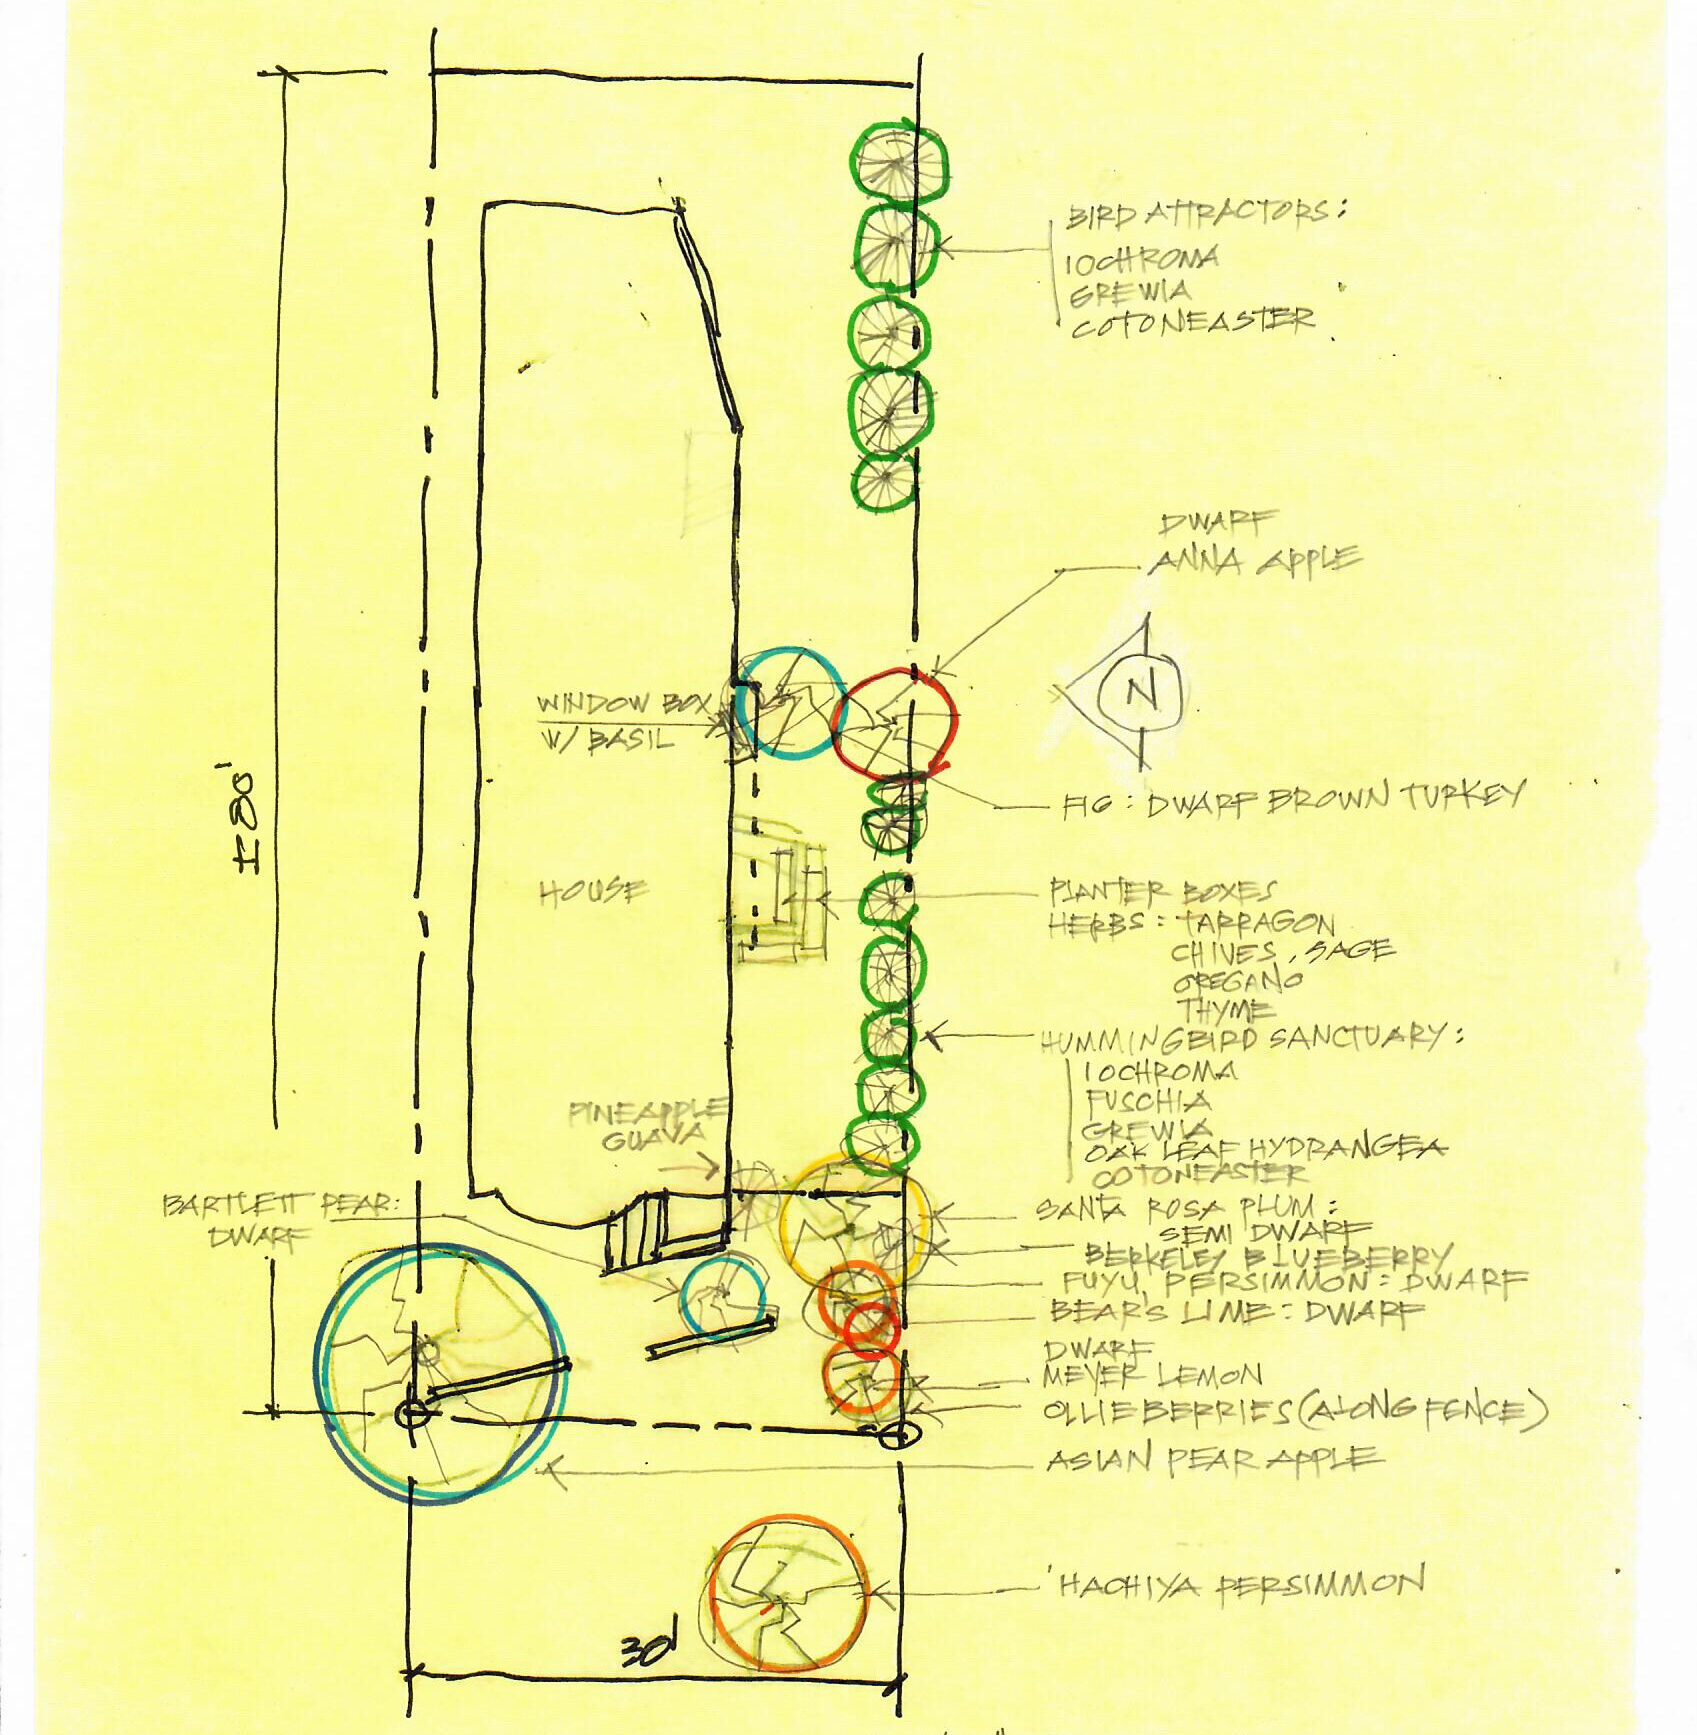 BIRD ATTRACTORS:
IOCHROMA
GREWIA
COTONEASTER
DWARF
ANNA APPLE
N
WINDOW BOX
W/ BASIL
FIG: DWARF BROWN TURKEY
±80'
HOUSE
PLANTER BOXES
HERBS: TARRAGON
CHIVES, SAGE
OREGANO
THYME
HUMMINGBIRD SANCTUARY:
IOCHROMA
FUSCHIA
GREWIA
OAK LEAF HYDRANGEA
COTONEASTER
PINEAPPLE
GUAVA
BARTLETT PEAR:
DWARF
SANTA ROSA PLUM:
SEMI DWARF
BERKELEY BLUEBERRY
FUYU PERSIMMON: DWARF
BEAR'S LIME: DWARF
DWARF
MEYER LEMON
OLLIEBERRIES (ALONG FENCE)
ASIAN PEAR APPLE
'HACHIYA PERSIMMON
30'